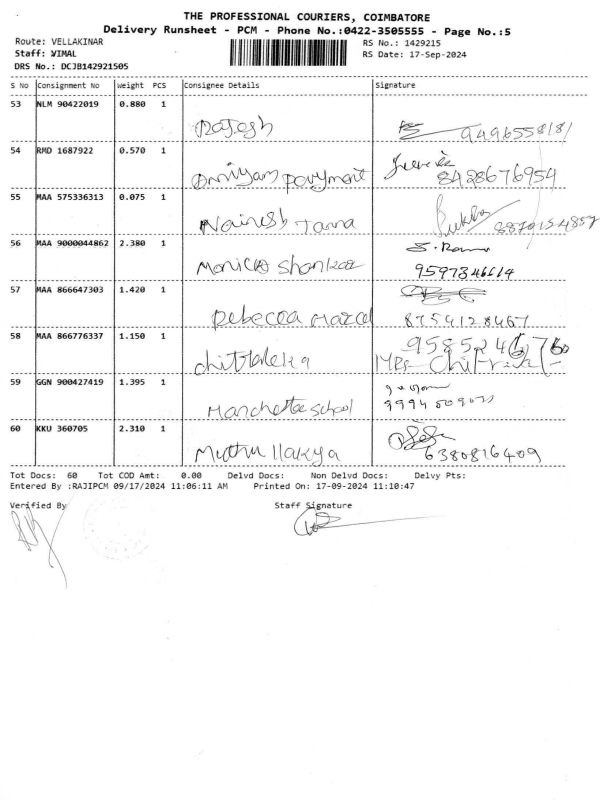 THE PROFESSIONAL COURIERS, COIMBATORE
Delivery Runsheet - PCM - Phone No.:0422-3505555 - Page No.:5
Route: VELLAKINAR RS No.: 1429215
Staff: VIMAL RS Date: 17-Sep-2024
DRS No.: DCJB142921505
S No Consignment No Weight PCS Consignee Details Signature
53 NLM 90422019 0.880 1
Rajesh 9496558181
54 RMD 1687922 0.570 1
8428676954
55 MAA 575336313 0.075 1
Nairesh Tanna 8879154857
56 MAA 9000044862 2.380 1
Monica Shankar
57 MAA 866647303 1.420 1
Rebecca 8754128467
58 MAA 866776337 1.150 1
Chitraleka Mrs
59 GGN 900427419 1.395 1
Manchester School
60 KKU 360705 2.310 1
Muthu Ilakya 6380816409
Tot Docs: 60 Tot COD Amt: 0.00 Delvd Docs: Non Delvd Docs: Delvy Pts:
Entered By :RAJIPCM 09/17/2024 11:06:11 AM Printed On: 17-09-2024 11:10:47
Verified By Staff Signature